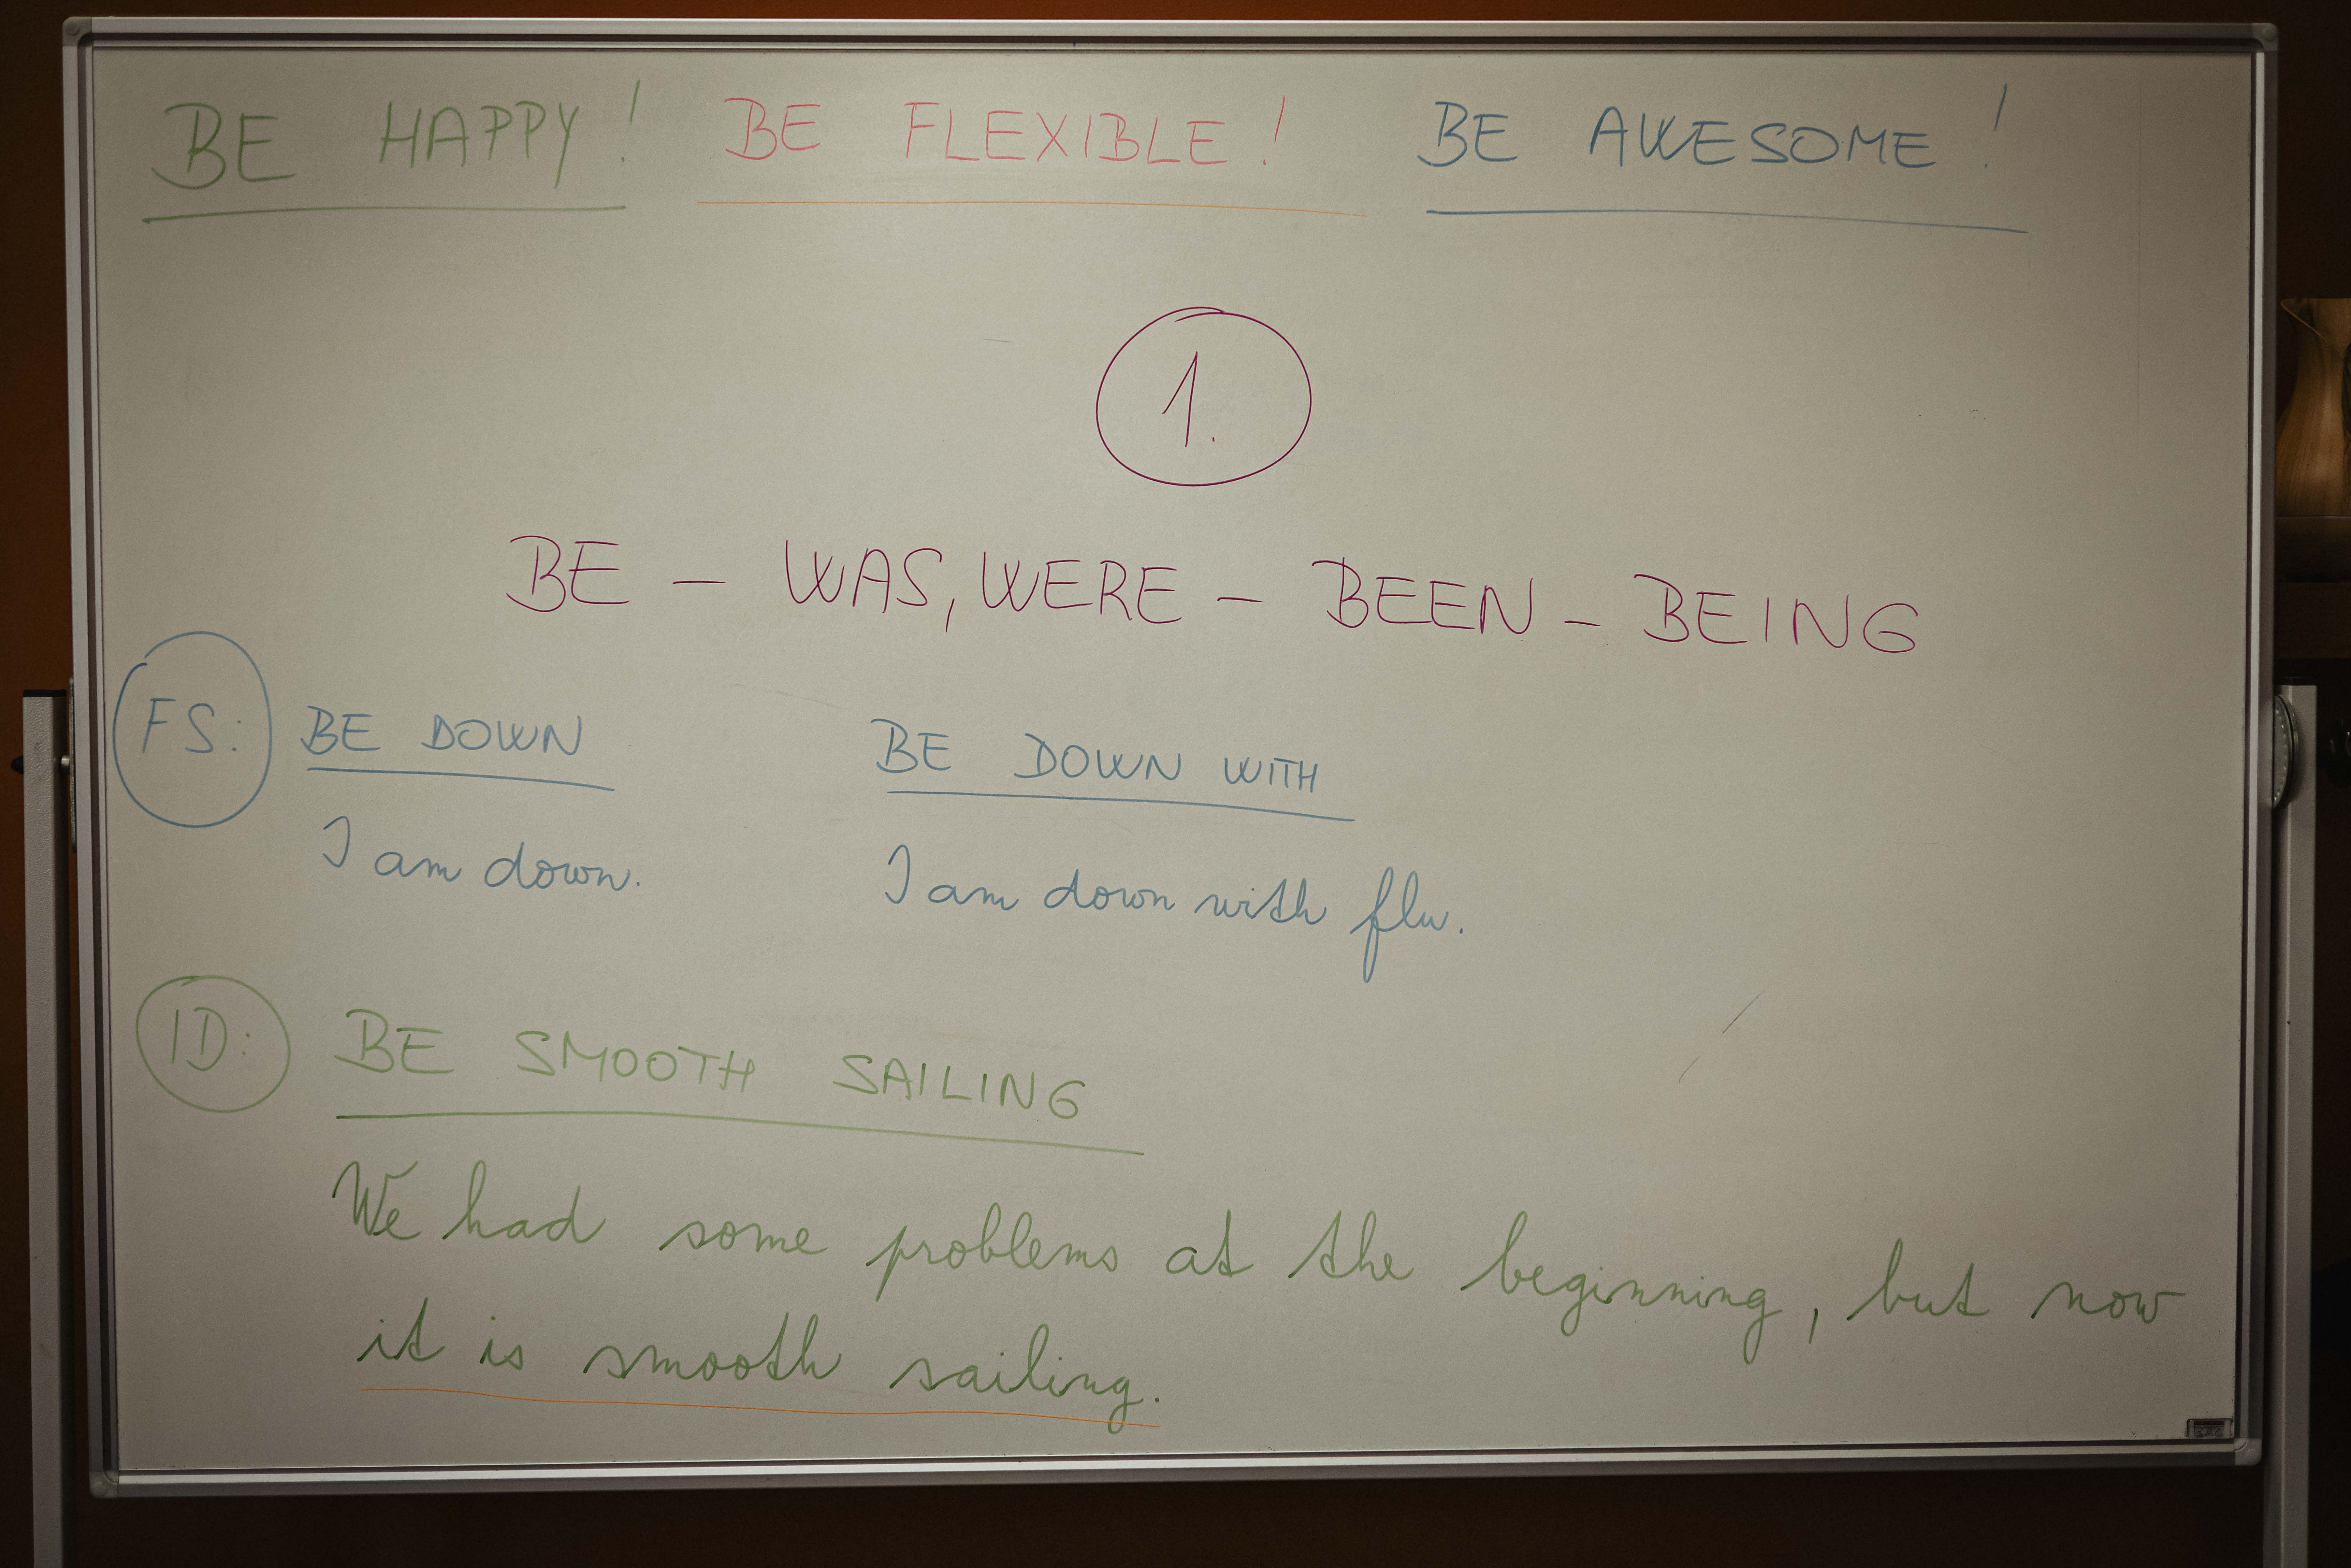 BE HAPPY! BE FLEXIBLE! BE AWESOME!
1.
BE – WAS, WERE – BEEN – BEING
FS: BE DOWN BE DOWN WITH
I am down. I am down with flu.
ID: BE SMOOTH SAILING
We had some problems at the beginning, but now
it is smooth sailing.